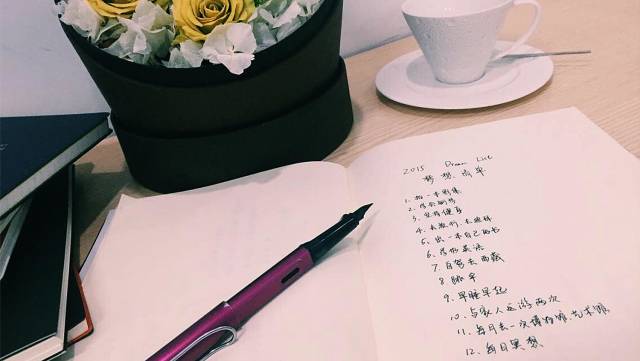 2015 Dream List
梦想清单
1. 拍一本影集
2. 学
3. 坚持健身
4. 去
5. 出一本自己的书
6. 学好英语
7. 自驾去西藏
8.
9. 早睡早起
10. 与家人远游两次
11. 每月去一次博物馆、艺术馆
12. 每日冥想